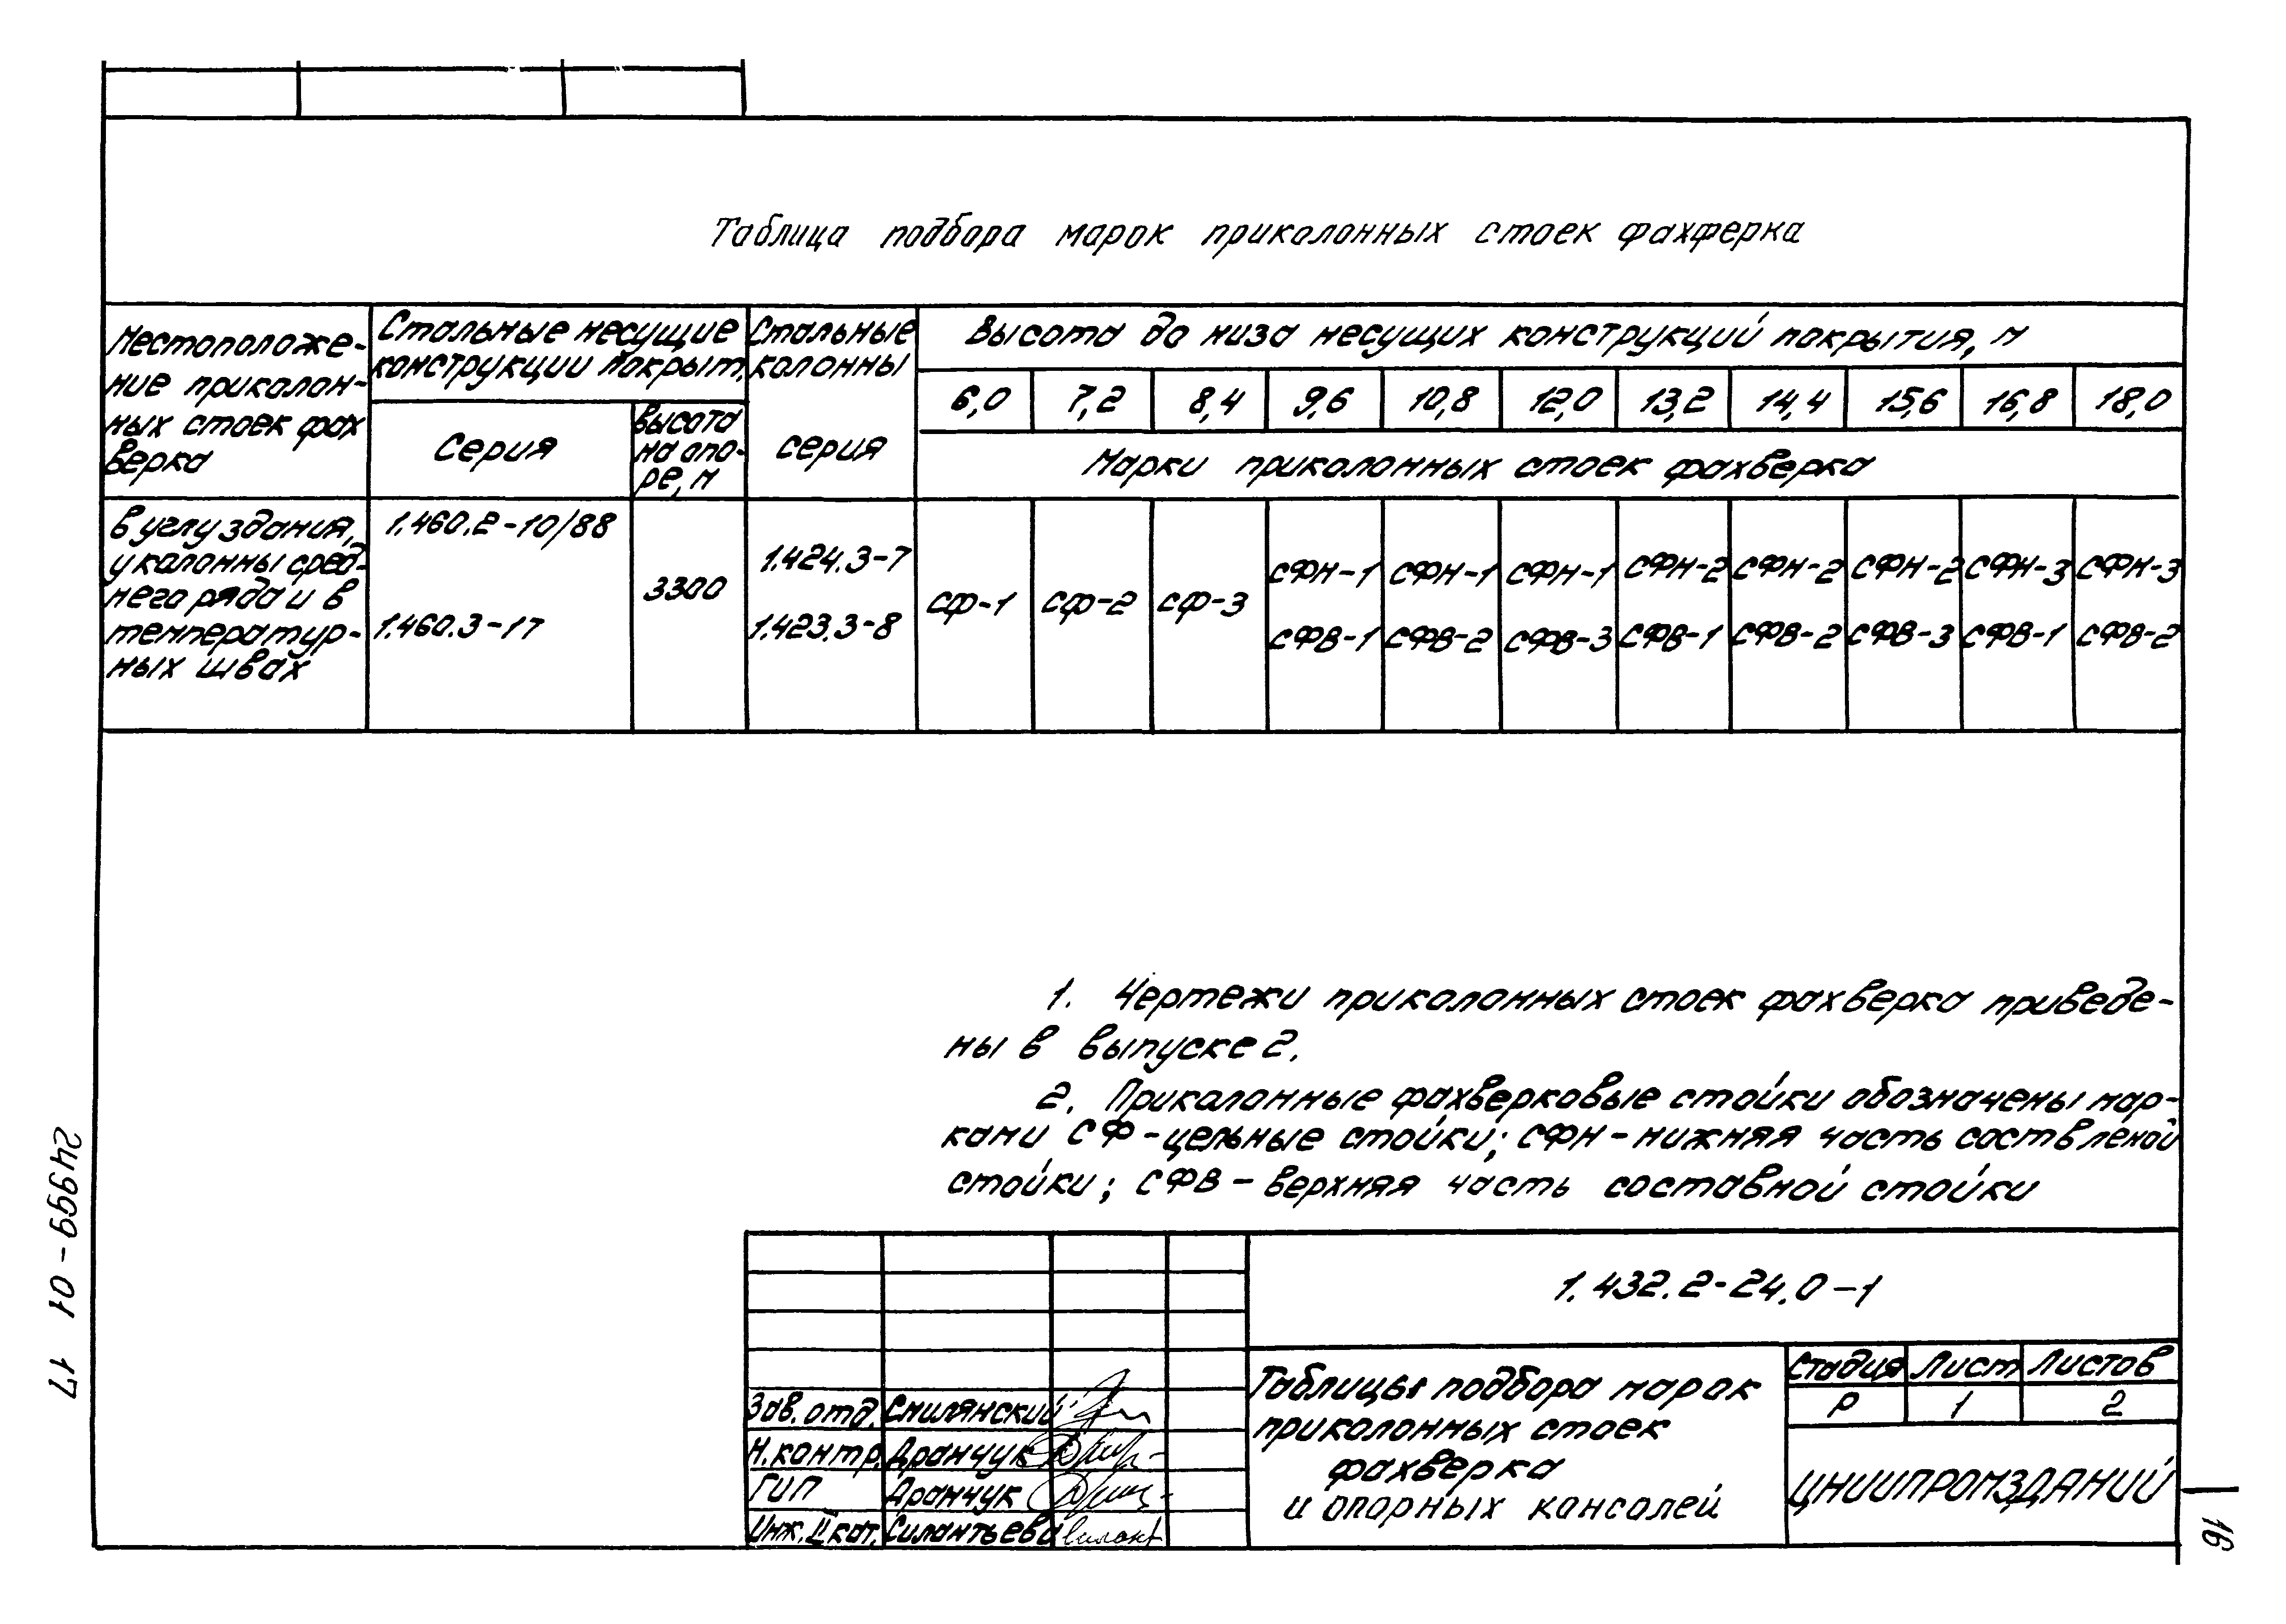 Таблица подбора марок приколонных стоек фахферка
Местоположе-
ние приколон-
ных стоек фах
верка
Стальные несущие
конструкции покрыт.
Серия
высота
на опо-
ре, м
Стальные
колонны
серия
Высота до низа несущих конструкций покрытия, м
6,0 7,2 8,4 9,6 10,8 12,0 13,2 14,4 15,6 16,8 18,0
Марки приколонных стоек фахверка
в углу здания,
у колонны сред-
него ряда и в
температур-
ных швах
1.460.2-10/88
1.460.3-17
3300
1.424.3-7
1.423.3-8
СФ-1 СФ-2 СФ-3
СФН-1 СФН-1 СФН-1 СФН-2 СФН-2 СФН-2 СФН-3 СФН-3
СФВ-1 СФВ-2 СФВ-3 СФВ-1 СФВ-2 СФВ-3 СФВ-1 СФВ-2
1. Чертежи приколонных стоек фахверка приведе-
ны в выпуске 2.
2. Приколонные фахверковые стойки обозначены мар-
ками СФ-цельные стойки; СФН-нижняя часть составленой
стойки; СФВ-верхняя часть составной стойки
1.432.2-24.0-1
Зав.отд. Смилянский
Н.контр. Дранчук
ГИП Дранчук
Инж. II кат. Силантьева
Таблицы подбора марок
приколонных стоек
фахверка
и опорных консолей
Стадия Лист Листов
Р 1 2
ЦНИИПРОМЗДАНИЙ
24999-01 17
16